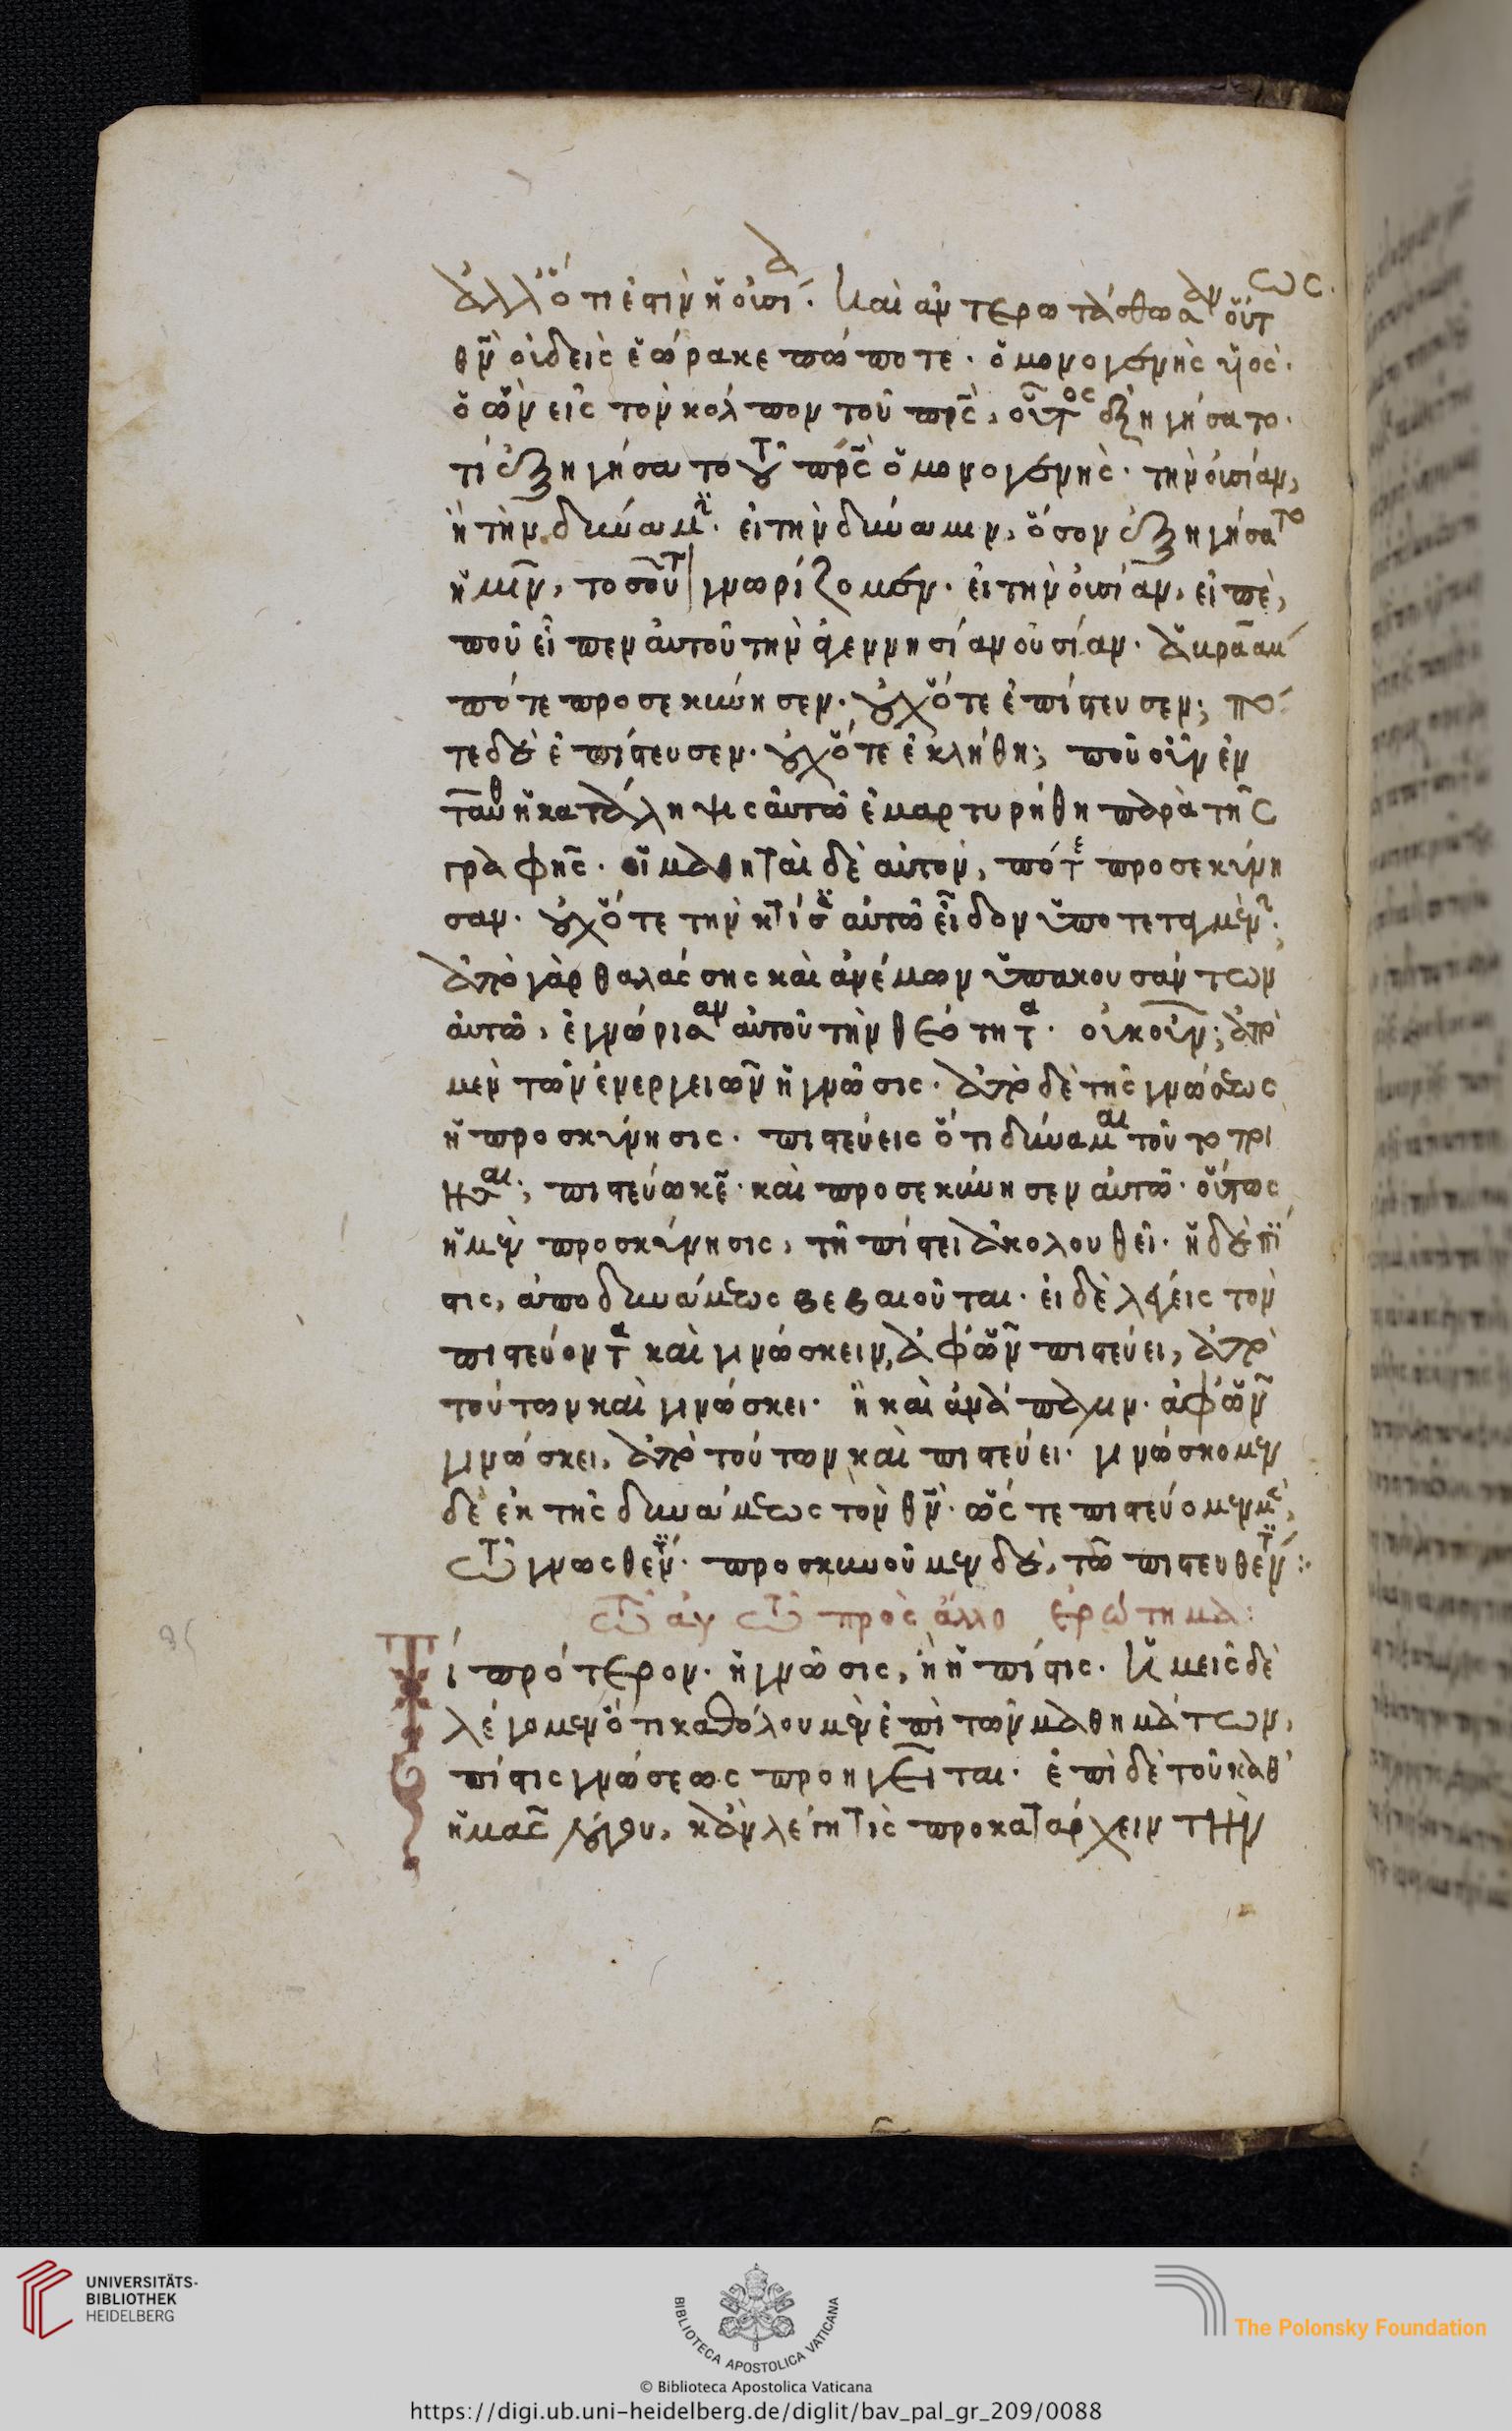 ἀλλ' ὅτι ἐστὶν ἡ οὐσία. Καὶ ἀντερωτάσθωσαν οὕτως.
θν οὐδεὶς ἑώρακε πώποτε· ὁ μονογενὴς υἱός·
ὁ ὢν εἰς τὸν κόλπον τοῦ πρς, οὗτος ἐξηγήσατο·
τί ἐξηγήσατο τοῦ πρς ὁ μονογενής· τὴν οὐσίαν,
ἢ τὴν δύναμιν· εἰ τὴν δύναμιν, ὅσον ἐξηγήσατο
ἡμῖν, τοσοῦτ γνωρίζομεν· εἰ τὴν οὐσίαν, εἰπὲ,
ποῦ εἶπεν αὐτοῦ τὴν ἀγεννησίαν οὐσίαν· ἀβραὰμ
πότε προσεκύνησεν· οὐχ ὅτε ἐπίστευσεν; πό
τε δὲ ἐπίστευσεν· οὐχ ὅτε ἐκλήθη; ποῦ οὖν ἐν
ταῦθ ἡ κατάληψις αὐτῶ ἐμαρτυρήθη παρὰ τῆς
γραφῆς· οἱ μαθηταὶ δὲ αὐτὸν, πότε προσεκύνη
σαν· οὐχ ὅτε τὴν κτίσιν αὐτῶ εἶδον ὑποτεταγμένην;
ἀπὸ γὰρ θαλάσσης καὶ ἀνέμων ὑπακουσάντων
αὐτῶ, ἐγνώρισαν αὐτοῦ τὴν θεότητα· οὐκοῦν; ἀπὸ
μὲν τῶν ἐνεργειῶν ἡ γνῶσις· ἀπὸ δὲ τῆς γνώσεως
ἡ προσκύνησις· πιστεύεις ὅτι δύναμαι τοῦτο ποι
ῆσαι; πιστεύω κε· καὶ προσεκύνησεν αὐτῶ· οὕτως
ἡ μὲν προσκύνησις, τῆ πίστει ἀκολουθεῖ· ἡ δὲ πί
στις, ἀπὸ δυνάμεως βεβαιοῦται· εἰ δὲ λέγεις τὸν
πιστεύοντα καὶ γινώσκειν, ἀφ' ὧν πιστεύει, ἀπὸ
τούτων καὶ γινώσκει· ἢ καὶ ἀνάπαλιν· ἀφ' ὧν
γινώσκει, ἀπὸ τούτων καὶ πιστεύει· γινώσκομεν
δὲ ἐκ τῆς δυνάμεως τὸν θν· ὥστε πιστεύομεν μὲν,
τῶ γνωσθέντι· προσκυνοῦμεν δὲ, τῶ πιστευθέντι :·
τῶ αὐτῶ πρὸς ἄλλο ἐρώτημα:
Τί πρότερον· ἡ γνῶσις, ἢ ἡ πίστις· Ἡμεῖς δὲ
λέγομεν ὅτι καθόλου μὲν ἐπὶ τῶν μαθημάτων,
πίστις γνώσεως προηγεῖται· ἐπὶ δὲ τοῦ καθ'
ἡμᾶς λόγου, κἂν λέγη τὶς προκατάρχειν τὴν
UNIVERSITÄTS-
BIBLIOTHEK
HEIDELBERG
BIBLIOTECA APOSTOLICA VATICANA
© Biblioteca Apostolica Vaticana
The Polonsky Foundation
https://digi.ub.uni-heidelberg.de/diglit/bav_pal_gr_209/0088